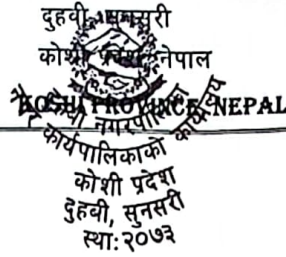 दुहवी, सुनसरी
कोशी प्रदेश, नेपाल
KOSHI PROVINCE, NEPAL
नगरपालिका
कार्यपालिकाको कार्यालय
कोशी प्रदेश
दुहवी, सुनसरी
स्था: २०७३